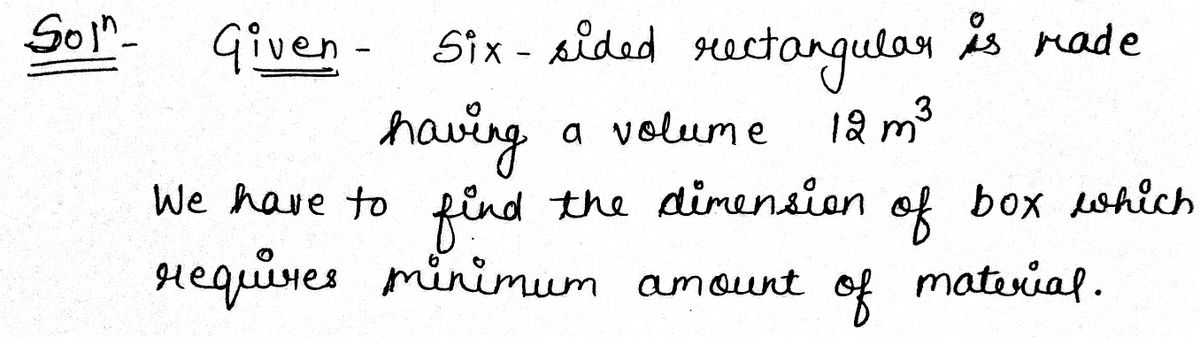 Solⁿ- Given - Six - sided rectangular is made
having a volume 12 m³
We have to find the dimension of box which
requires minimum amount of material.